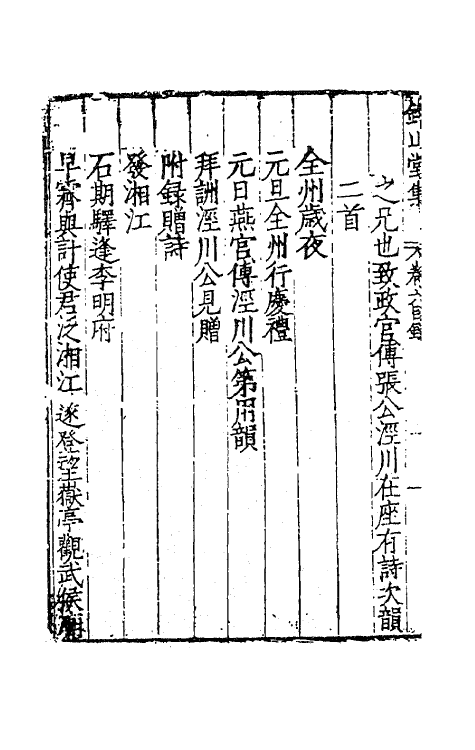 鈐山堂集 卷六目錄
之兄也致政官傅張公涇川在座有詩次韻
二首
全州歲夜
元旦全州行慶禮
元日燕官傅涇川公第用韻
拜詶涇川公見贈
附錄贈詩
發湘江
石期驛逢李明府
早霽與計使君泛湘江遂登望嶽亭觀武侯廟